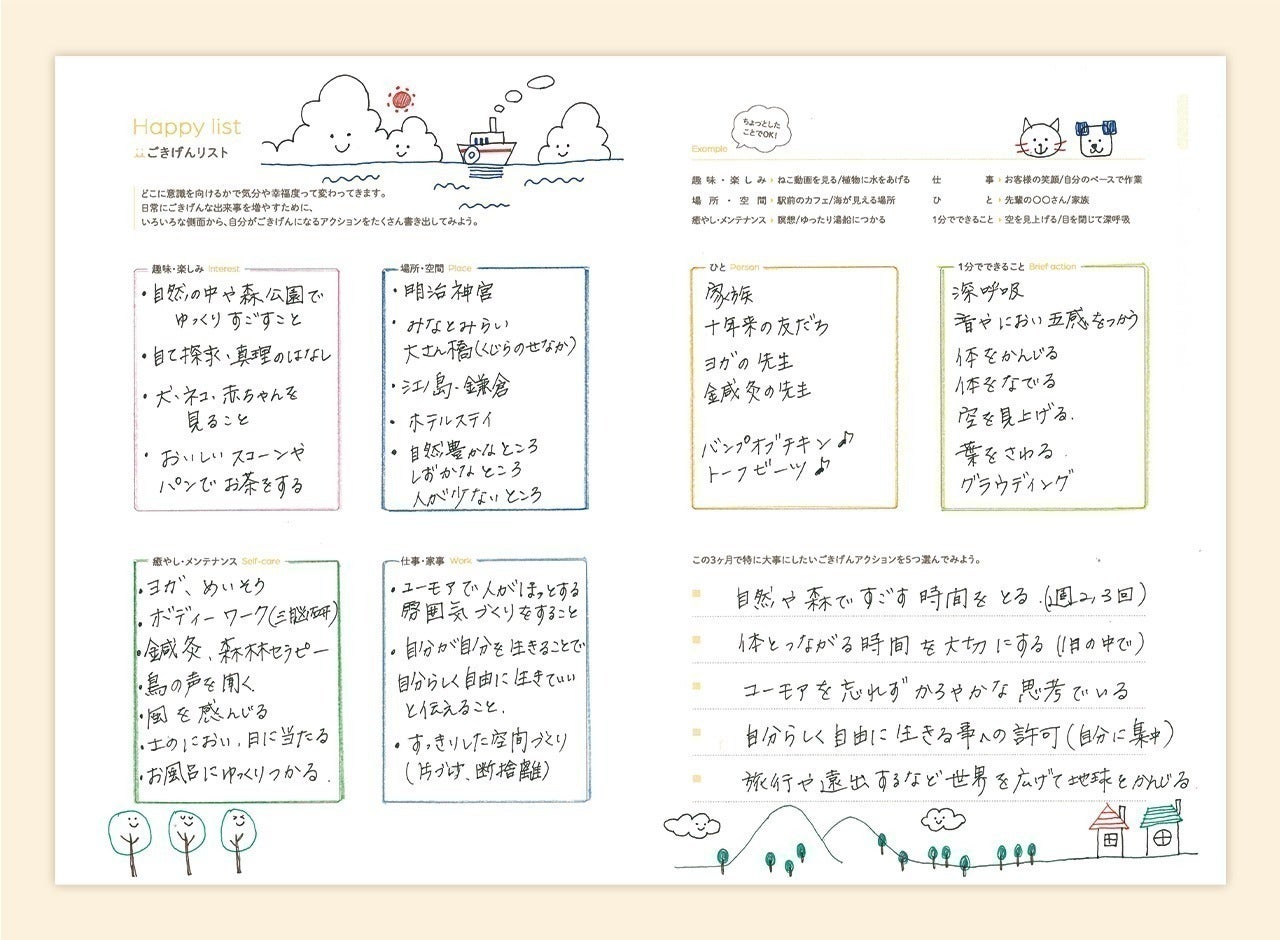 Happy list
ごきげんリスト
どこに意識を向けるかで気分や幸福度って変わってきます。
日常にごきげんな出来事を増やすために、
いろいろな側面から、自分がごきげんになるアクションをたくさん書き出してみよう。
趣味・楽しみ Interest
・自然の中や森、公園で
ゆっくりすごすこと
・自己探求・真理のはなし
・犬・ネコ・赤ちゃんを
見ること
・おいしいスコーンや
パンでお茶をする
場所・空間 Place
・明治神宮
・みなとみらい
大さん橋(くじらのせなか)
・江ノ島・鎌倉
・ホテルステイ
・自然豊かなところ
しずかなところ
人が少ないところ
癒やし・メンテナンス Self-care
・ヨガ、めいそう
・ボディーワーク(三脳研)
・鍼灸、森林セラピー
・鳥の声を聞く
・風を感んじる
・土のにおい、日に当たる
・お風呂にゆっくりつかる.
仕事・家事 Work
・ユーモアで人がほっとする
雰囲気づくりをすること
・自分が自分を生きることで
自分らしく自由に生きていい
と伝えること.
・すっきりした空間づくり
(片づけ、断捨離)
Example
ちょっとした
ことでOK!
趣味・楽しみ ねこ動画を見る/植物に水をあげる
場所・空間 駅前のカフェ/海が見える場所
癒やし・メンテナンス 瞑想/ゆったり湯船につかる
仕事 お客様の笑顔/自分のペースで作業
ひと 先輩の〇〇さん/家族
1分でできること 空を見上げる/目を閉じて深呼吸
ひと Person
家族
十年来の友だち
ヨガの先生
鍼灸の先生
バンプオブチキン♪
トーフビーツ♪
1分でできること Brief action
深呼吸
音やにおい五感をつかう
体をかんじる
体をなでる
空を見上げる.
葉をさわる.
グラウディング
この3ヶ月で特に大事にしたいごきげんアクションを5つ選んでみよう。
自然や森ですごす時間をとる.(週2,3回)
体とつながる時間を大切にする(1日の中で)
ユーモアを忘れずかろやかな思考でいる
自分らしく自由に生きる事への許可(自分に集中)
旅行や遠出するなど世界を広げて地球とかんじる.